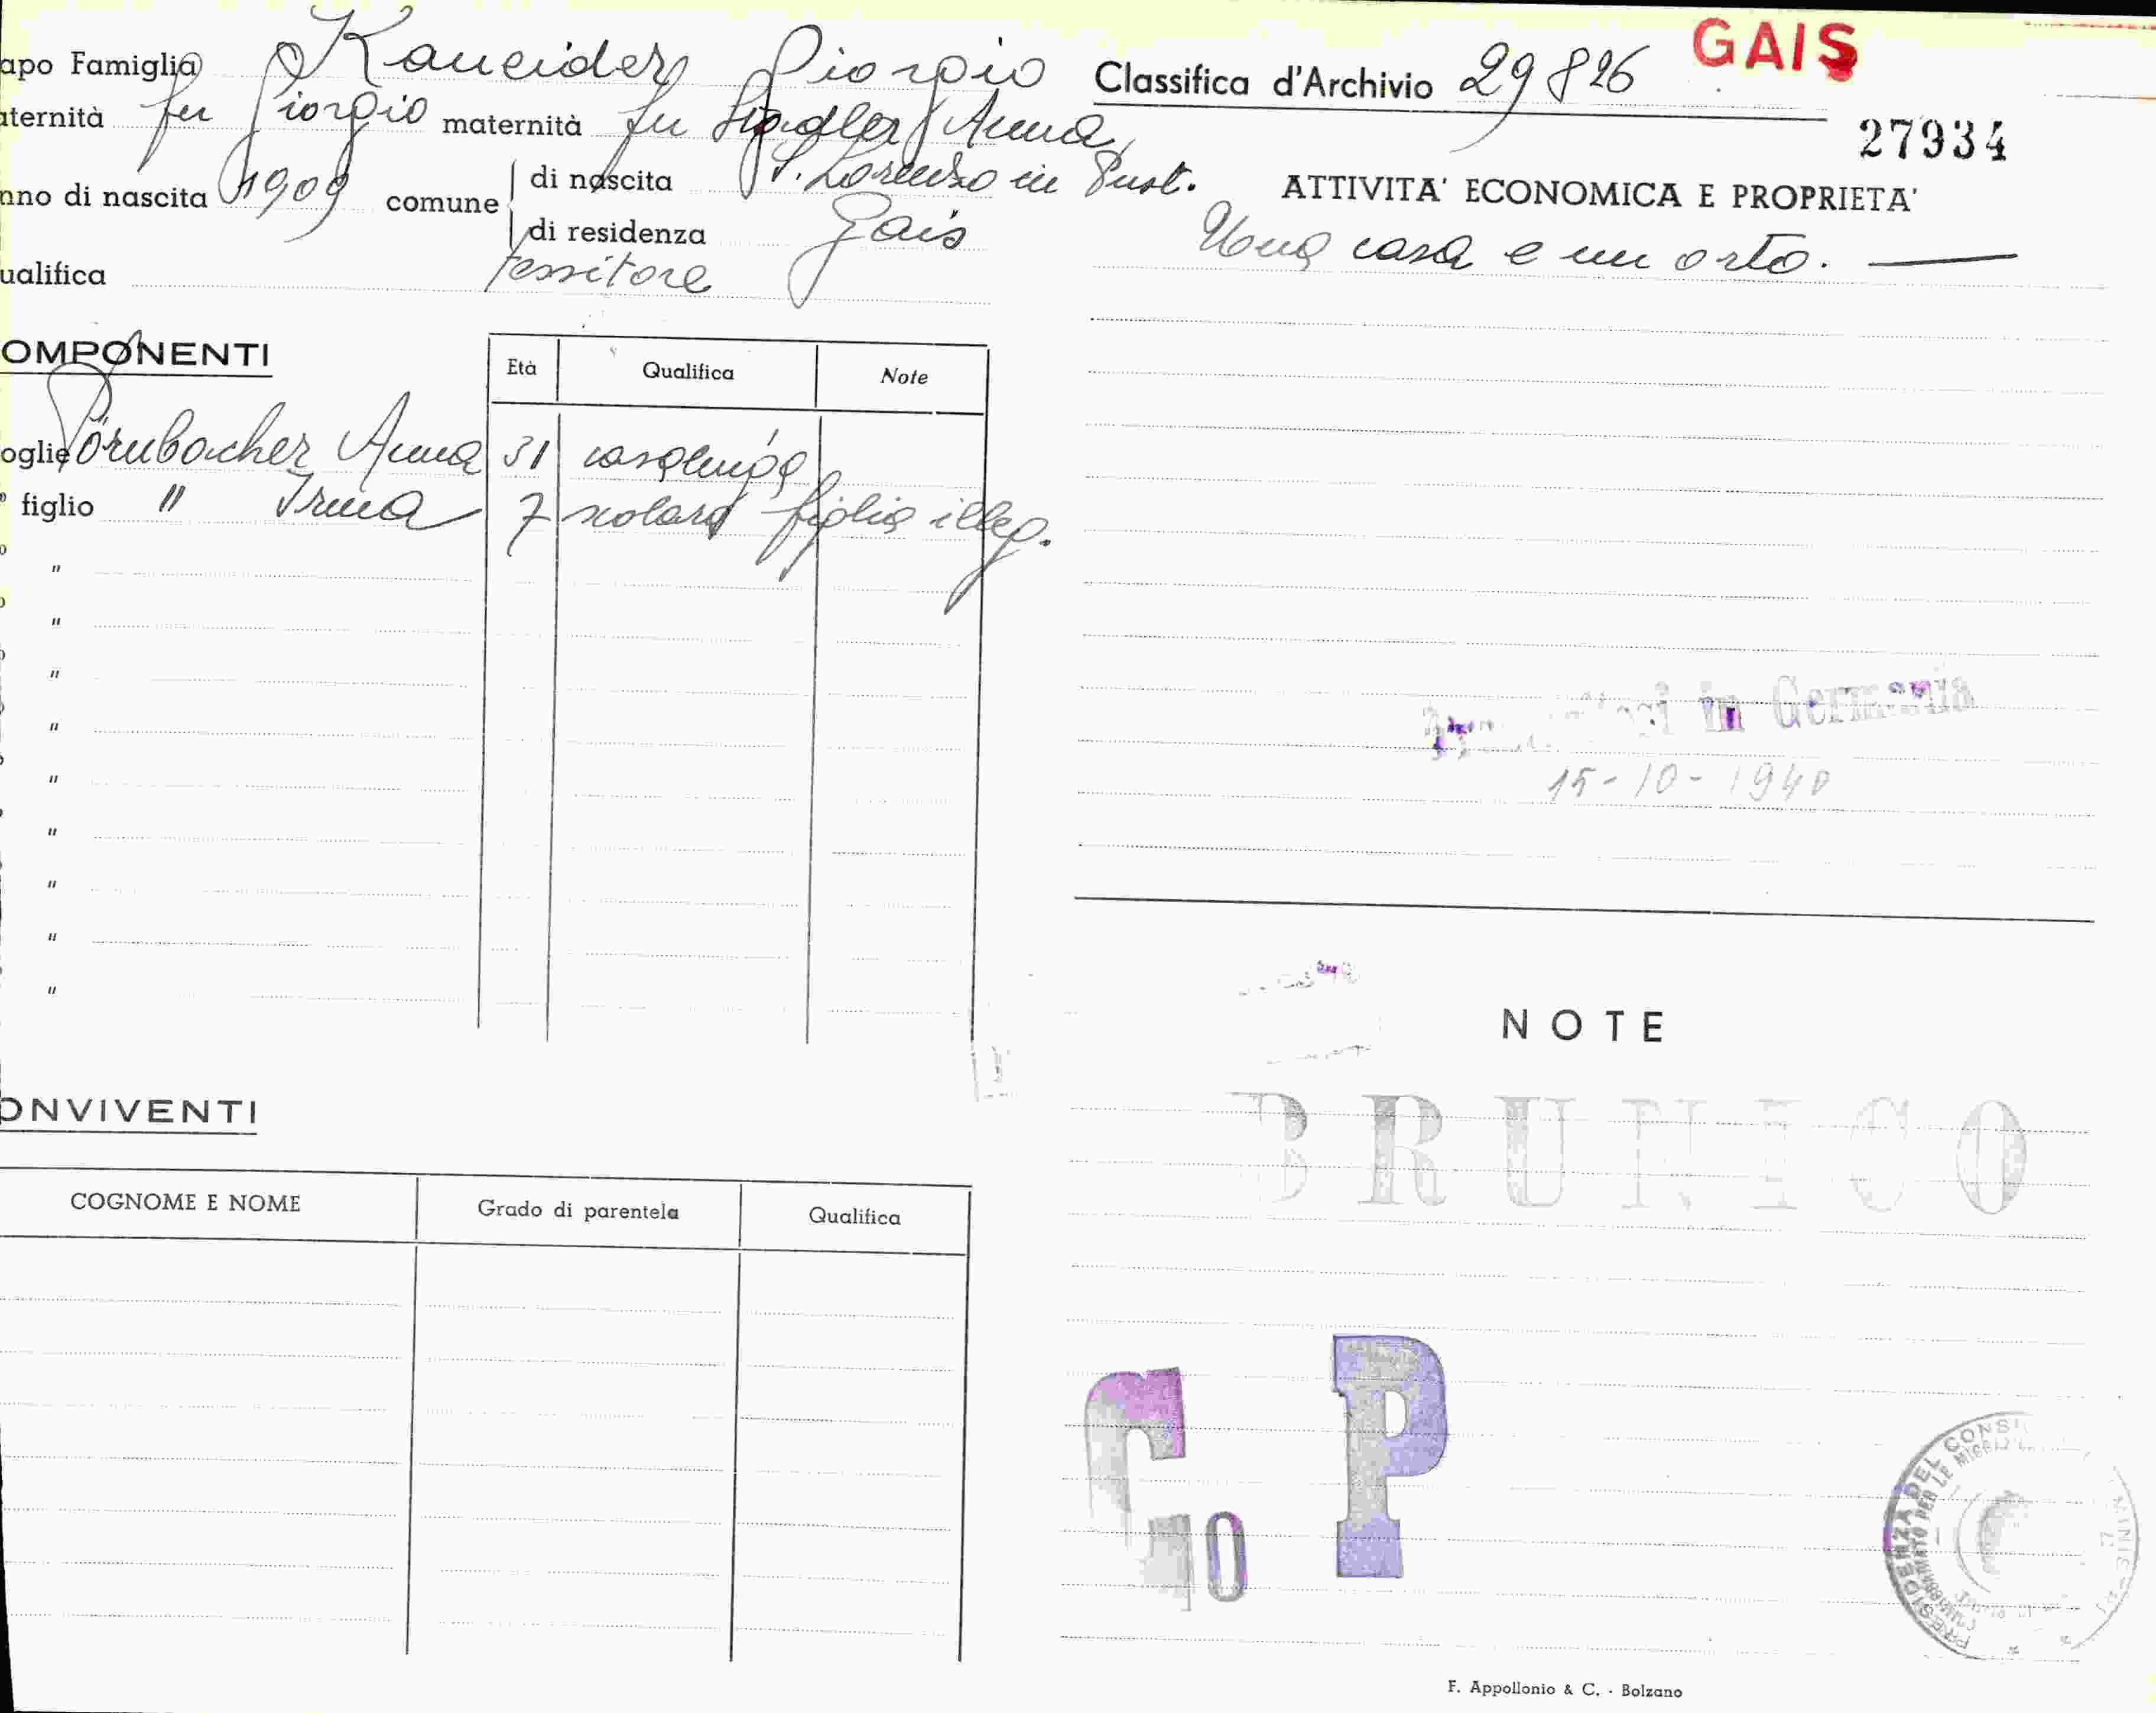 apo Famiglia Kaneider Giorgio
aternità fu Giorgio maternità fu Stadler Anna
nno di nascita 1909 comune di nascita S. Lorenzo in Pust.
di residenza Gais
ualifica tessitore
OMPONENTI
Età Qualifica Note
oglie Pörnbacher Anna 31 casalinga
figlio " Irma 7 scolara figlia illeg.
"
"
"
"
"
"
"
"
"
ONVIVENTI
COGNOME E NOME Grado di parentela Qualifica
Classifica d'Archivio 29826 GAIS
27934
ATTIVITA' ECONOMICA E PROPRIETA'
Una casa e un orto.
in Germania
15-10-1940
NOTE
BRUNICO
G P
10
PRESIDENZA DEL CONSI
F. Appollonio & C. - Bolzano